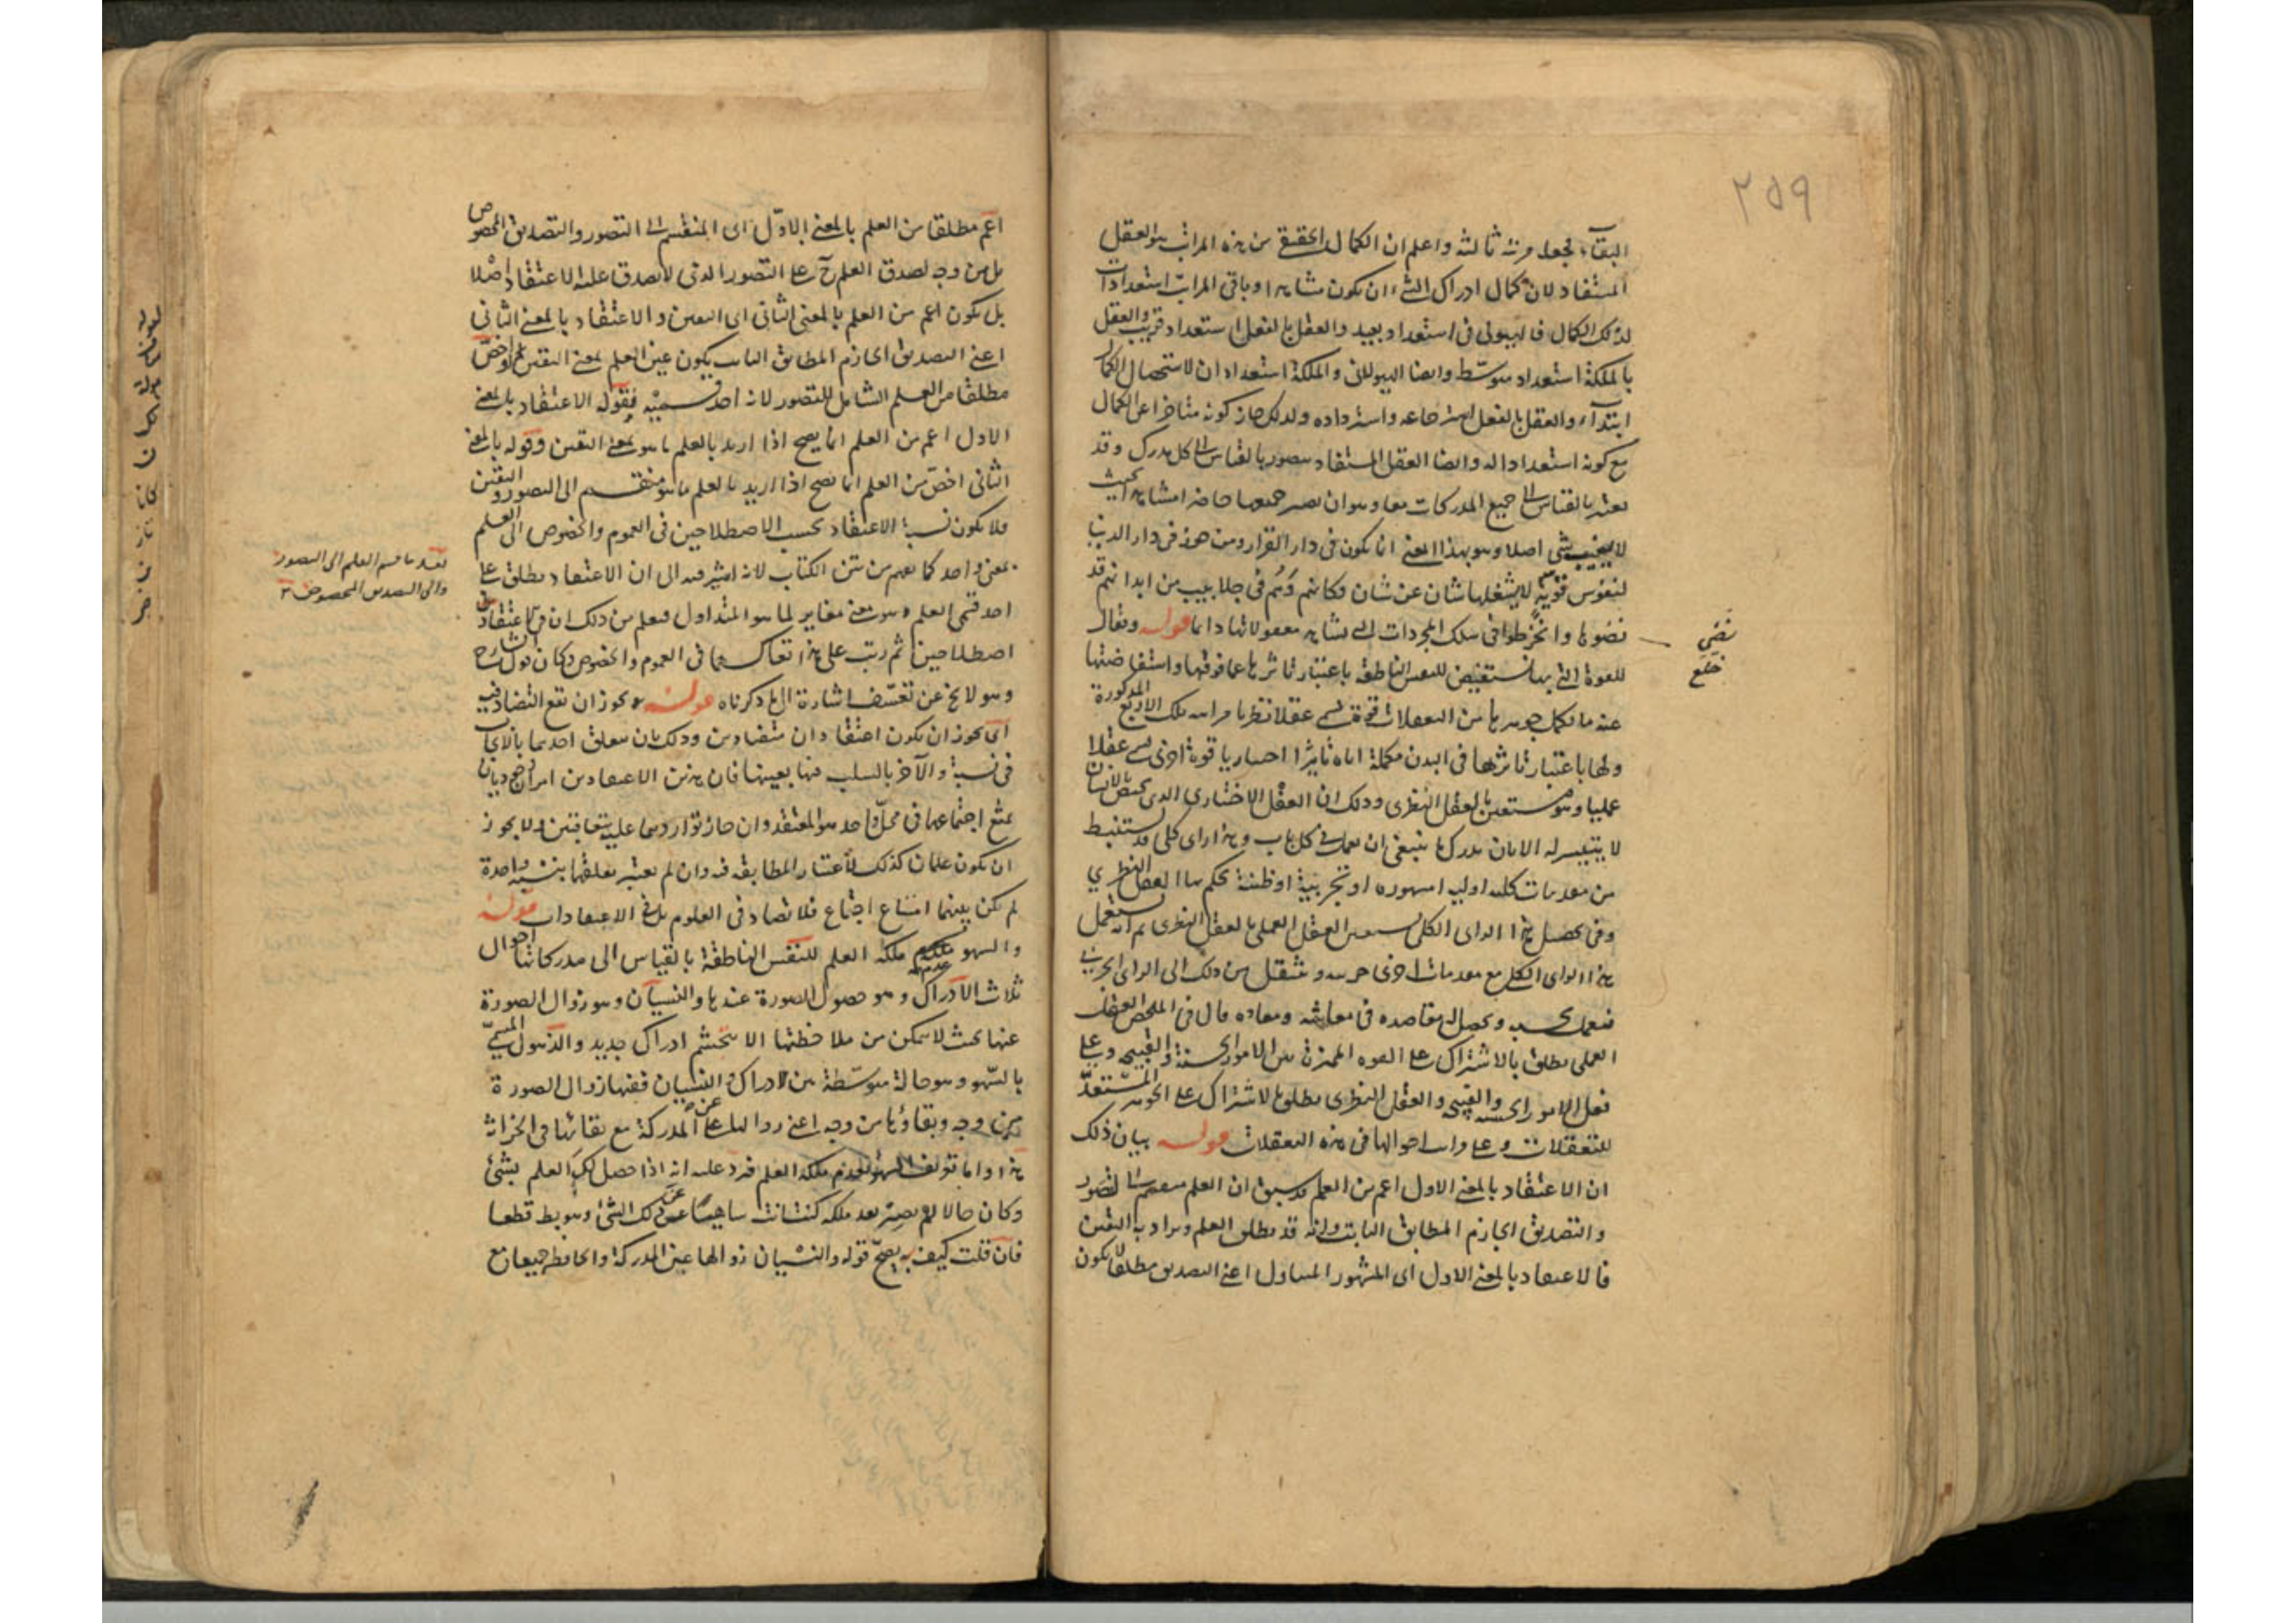 ٢٥٩
البقاء فجعل مرتبة ثالثة واعلم ان الكمال الحقيقي من هذه المراتب هو العقل
المستفاد لان كمال ادراك الشيء ان يكون مشاهدا وباقي المراتب استعدادات
لذلك الكمال فالهيولي في استعداد بعيد والعقل بالفعل استعداد قريب والعقل
بالملكة استعداد متوسّط وايضا الهيولاني والملكة استعدادان لاستحصال الكمال
ابتداء والعقل بالفعل استرجاعه واسترداده ولذلك جاز كونه متأخرا عن الكمال
مع كونه استعدادا له وايضا العقل المستفاد يتصور بالقياس الى كل مدرك وقد
يعتبر بالقياس الى جميع المدركات معا وهو ان يصير جميعها حاضرا مشاهدا بحيث
لا يغيب شي اصلا وهو بهذا المعنى انما يكون في دار القرار ومن هذه في دار الدنيا
لنفوس قوية لا يشغلها شان عن شان فكانهم وهم في جلابيب من ابدانهم قد
نضوها وانخرطوا في سلك المجردات التي تشاهد معقولاتها دائما قوله ويقال
نضي
خلع
للقوة التي بها تستفيض للنفس الناطقة باعتبار تاثرها عما فوقها واستفاضتها
عنه ما يكمل جوهرها من التعقلات قوة تسمى عقلا نظريا مراتبه تلك الاربع المذكورة
ولها باعتبار تاثيرها في البدن مكملة اياه تاثيرا اختياريا قوة اخرى تسمى عقلا
عمليا وهو يستعين بالعقل النظري وذلك ان العقل الاختياري الذي يختص بالانسان
لا يتيسر له الا بان يدرك ما ينبغي ان يعمل في كل باب وهذا راي كلي قد يستنبط
من مقدمات كلية اولية او مشهورة او تجربية او ظنية يحكم بها العقل النظري
وفي تحصيل هذا الراي الكلي يستعين العقل العملي بالعقل النظري ثم انه يستعمل
هذا الراي الكلي مع مقدمات اخرى جزئية وينتقل من ذلك الى الراي الجزئي
فيعمل بحسبه ويحصل له مقاصده في معاشه ومعاده قال في الملخص العقل
العملي يطلق بالاشتراك على القوة المميزة بين الامور الحسنة والقبيحة وعلى
فعل الامور الحسنة والقبيحة والعقل النظري يطلق بالاشتراك على الجوهر المستعد
للتعقلات وعلى مراتب احوالها في هذه التعقلات قوله بيان ذلك
ان الاعتقاد بالمعنى الاول اعم من العلم قد سبق ان العلم منقسم الى تصور
والتصديق الجازم المطابق الثابت وانه قد يطلق العلم ويراد به اليقين
فالاعتقاد بالمعنى الاول اي المشهور المتداول اعني التصديق مطلقا لا يكون
اعم مطلقا من العلم بالمعنى الاوّل اي المنقسم الى التصور والتصديق المخصوص
بل من وجه لصدق العلم ح على التصور الذي لا يصدق عليه الاعتقاد اصلا
بل يكون اعم من العلم بالمعنى الثاني اي اليقين والاعتقاد بالمعنى الثاني
اعني التصديق الجازم المطابق الثابت يكون عين العلم بمعنى اليقين واخصّ
مطلقا من العلم الشامل للتصور لانه احد قسميه فقوله الاعتقاد بالمعنى
الاول اعم من العلم انما يصح اذا اريد بالعلم ما هو بمعنى اليقين وقوله بالمعنى
الثاني اخصّ من العلم انما يصح اذا اريد بالعلم ما هو منقسم الى التصور واليقين
فلا يكون نسبة الاعتقاد بحسب الاصطلاحين في العموم والخصوص الى العلم
بمعنى واحد كما يفهم من متن الكتاب لانه اشير فيه الى ان الاعتقاد يطلق على
لعله ما قسم العلم الى التصور
والى التصديق المخصوص
احد قسمي العلم وهو معنى مغاير لما هو المتداول فيعلم من ذلك ان في الاعتقاد
اصطلاحين ثم رتب على هذا تعاكسهما في العموم والخصوص وكان قول الشارح
وهو لا يخ عن تعسّف اشارة الى ما ذكرناه قوله ويجوز ان يقع التضاد فيه
اي يجوز ان يكون اعتقادان متضادين وذلك بان يتعلق احدهما بالايجاب
في نسبة والآخر بالسلب فيها بعينها فان هذين الاعتقادين امران وجوديان
يمتنع اجتماعهما في محلّ واحد هو المعتقد وان جاز تواردهما عليه متعاقبين ولا يجوز
ان يكون علمان كذلك لاعتبار المطابقة فيه وان لم يعتبر تعلقهما بنسبة واحدة
لم يكن بينهما امتناع اجتماع فلا تضاد في العلوم بل في الاعتقادات قوله
والسهو عدم ملكة العلم للنفس الناطقة بالقياس الى مدركاتها احوال
ثلاث الادراك وهو حصول الصورة عندها والنسيان وهو زوال الصورة
عنها بحيث لا يتمكن من ملاحظتها الا بتجشم ادراك جديد والذهول المسمّى
بالسّهو وهو حالة متوسّطة بين الادراك والنسيان ففيها زوال الصورة
من وجه وبقاؤها من وجه اعني زوالها عن المدركة مع بقائها في الخزانة
هذا واما تعريف السهو بعدم ملكة العلم فيرد عليه انه اذا حصل لك العلم بشئ
وكان حالا لم يصر بعد ملكة كنت انت ساهيا عن ذلك الشئ وهو بط قطعا
فان قلت كيف يصحّ قوله والنسيان زوالها عن المدركة والحافظة جميعا مع